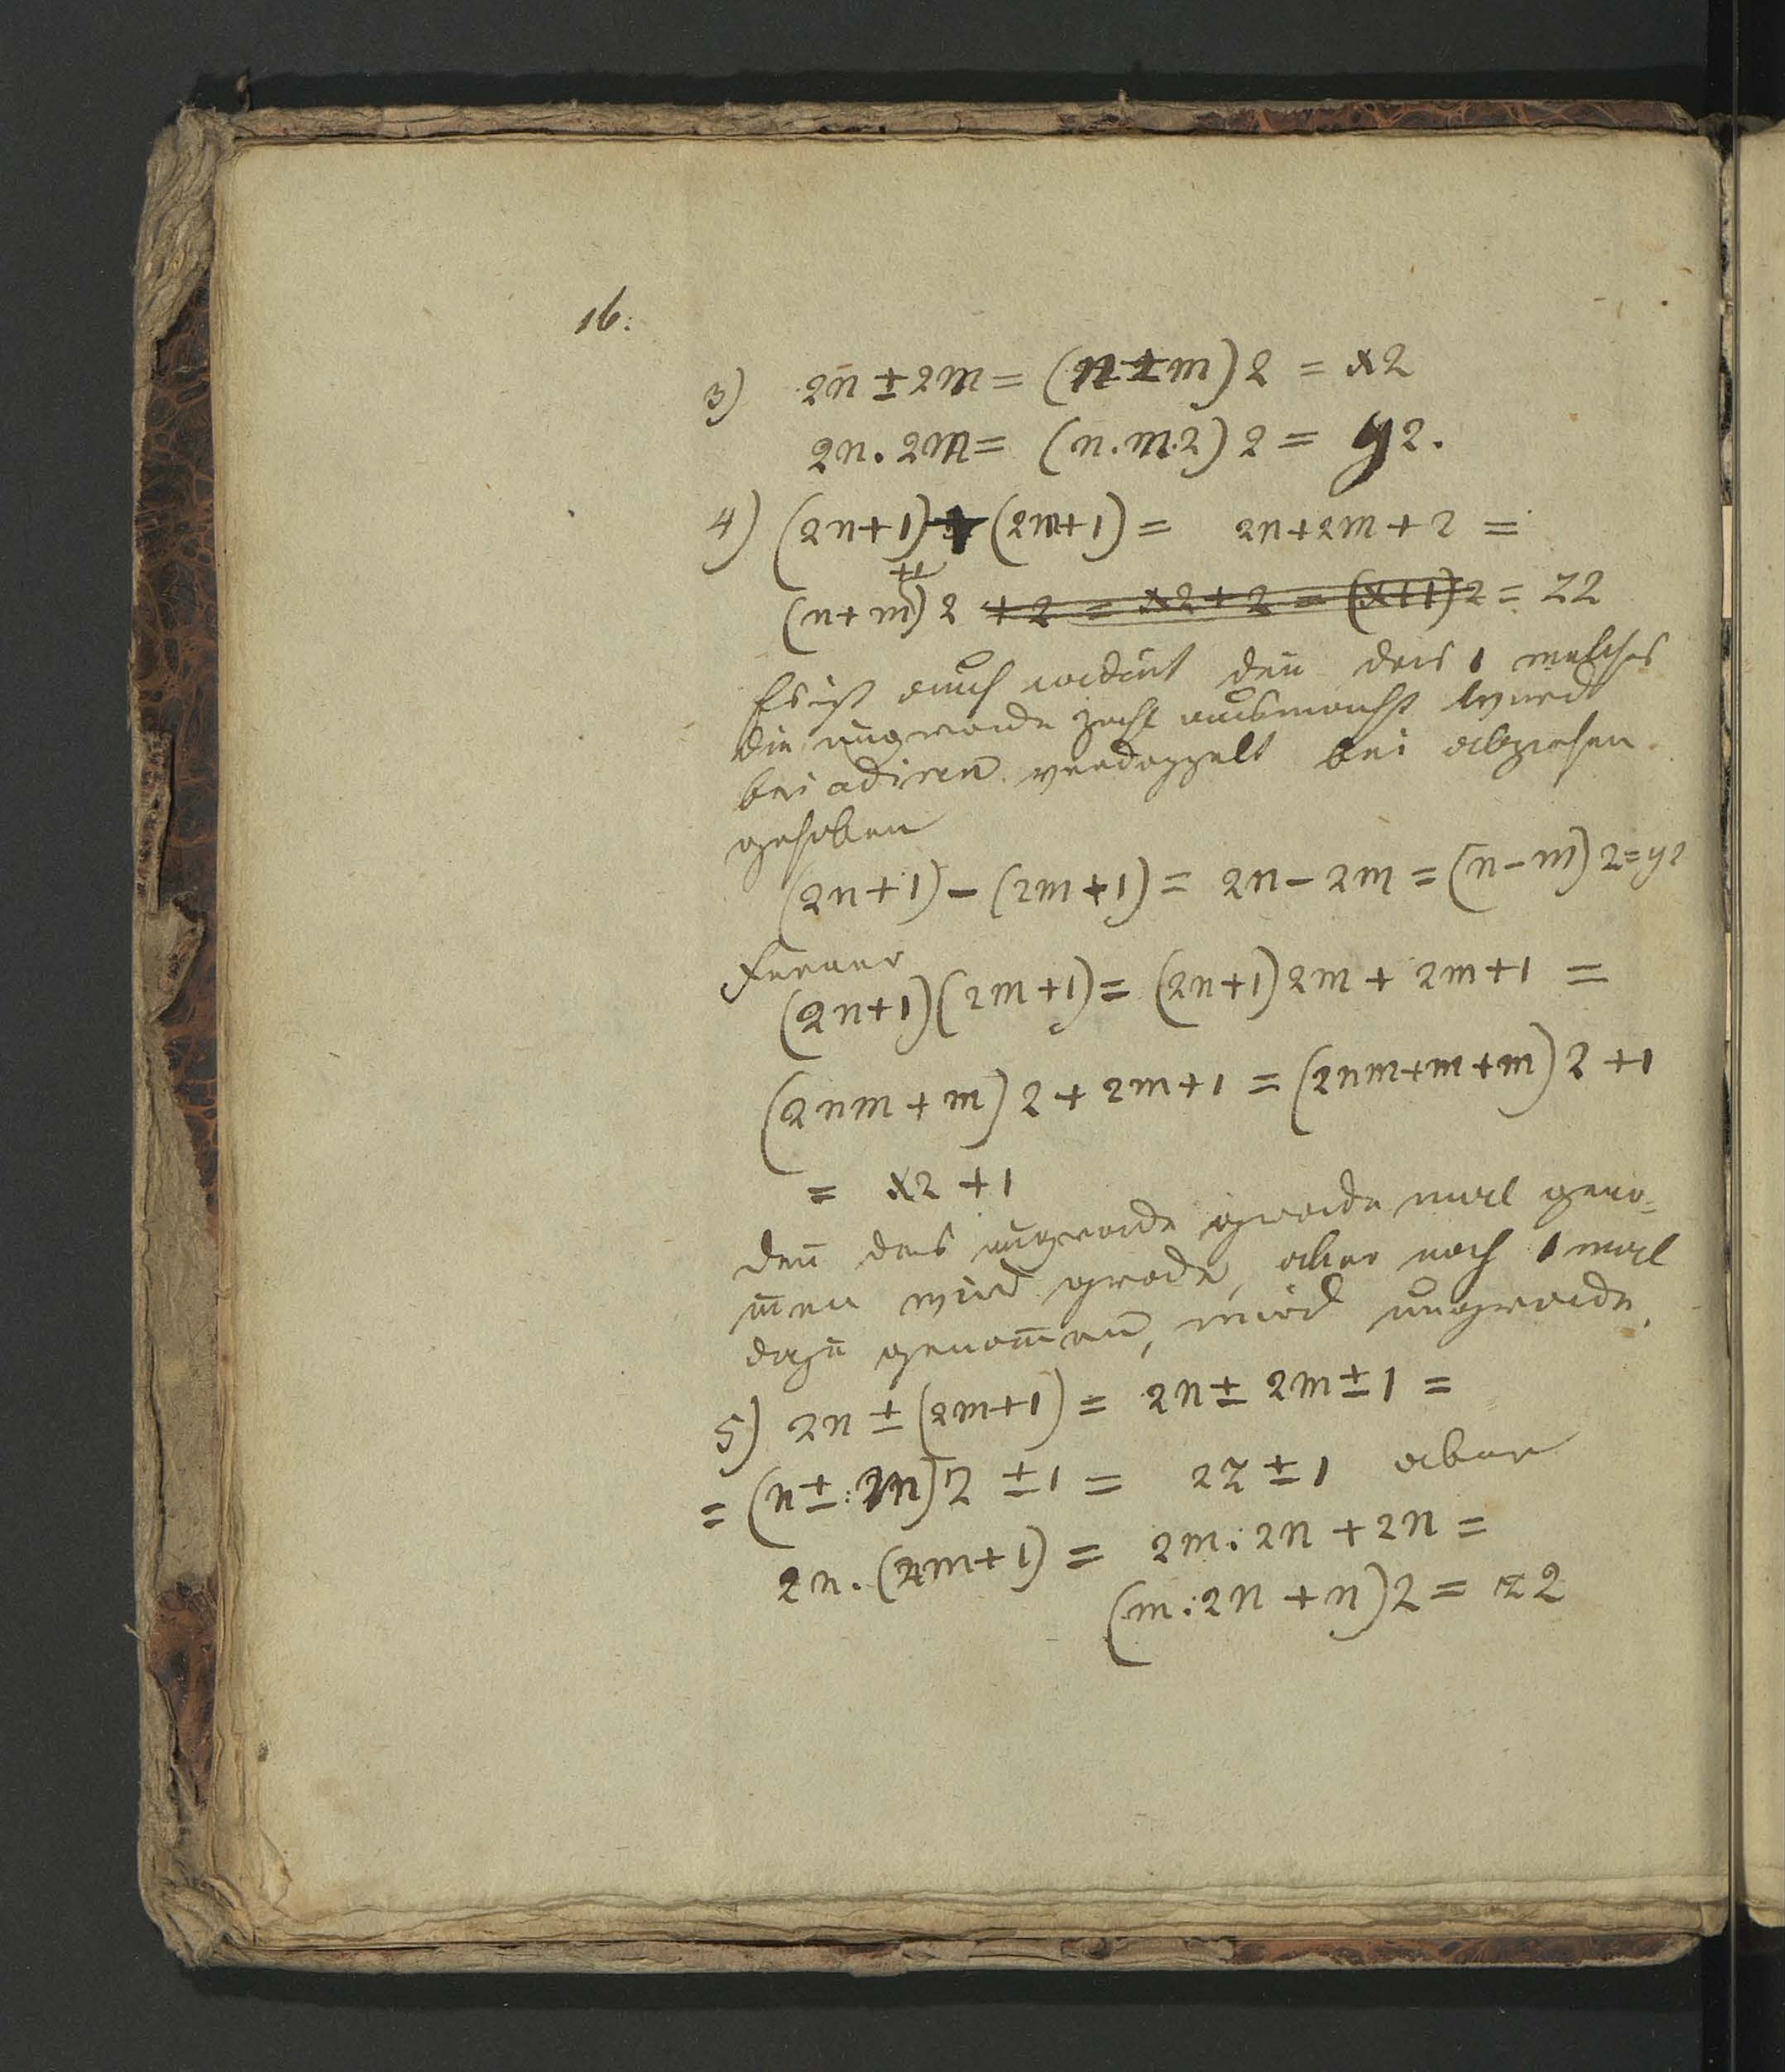 16.
3) 2n ± 2m = (n ± m) 2 = x2
2n. 2m = (n. m. 2) 2 = y2.
4) (2n+1) + (2m+1) = 2n+2m+2 =
(n+m+1) 2 + 2 = x2 + 2 = (x+1) 2 = z2
Es ist auch den das 1 welches
die ungrade Zahl ausmacht wird
bei adiren verdoppelt bei abziehen
gehoben
(2n+1) – (2m+1) = 2n – 2m = (n – m) 2 = y2
Ferner
(2n+1) (2m+1) = (2n+1) 2m + 2m+1 =
(2nm + m) 2 + 2m+1 = (2nm+m+m) 2 +1
= x2 +1
den das ungrade grade mal geno-
men wird grade, aber noch 1 mal
dazu genom̄en, wird ungrade.
5) 2n ± (2m+1) = 2n ± 2m ± 1 =
= (n ± m) 2 ± 1 = 2z ± 1 aber
2n. (2m+1) = 2m: 2n + 2n =
(m: 2n + n) 2 = z2